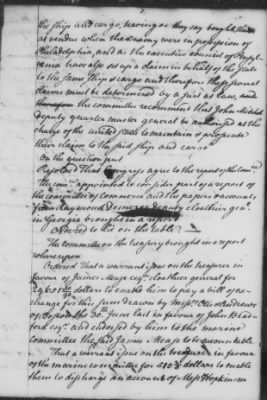 the ship and cargo, having as they say bought them
at vendue when the enemy were in possession of
Philadelphia, and as the executive council of Pennsyl-
vania have also set up a claim in behalf of the state
to the same ship & cargo and therefore these several
claims must be determined by a just at law, and
the committee recommend that John Mitchel
deputy quarter master general be authorised at the
charge of the united states to maintain & prosecute
their claim to the said ship and cargo
On the question put
Resolved That Congress agree to the report of the comee
The comee appointed to consider part of a report of
the committee of commerce and the papers & accounts
deputy cloathier genl
in Georgia brought in a report
Ordered to lie on the table
The committee on the treasury brought in a report
whereupon
Ordered That a warrant issue on the treasurer in
favour of James Mease esqr cloathier general for
dollars to enable him to pay a bill of ex-
change for this sum drawn by Messrs Otis & Andrews
of Boston the 30th June last in favour of John Brad-
ford esqr and endorsed by him to the marine
committee the said James Mease to be accountable
That a warrant issue on the treasurer in favour
of the marine committee for dollars to enable
them to discharge an account of Messrs Hopkinson